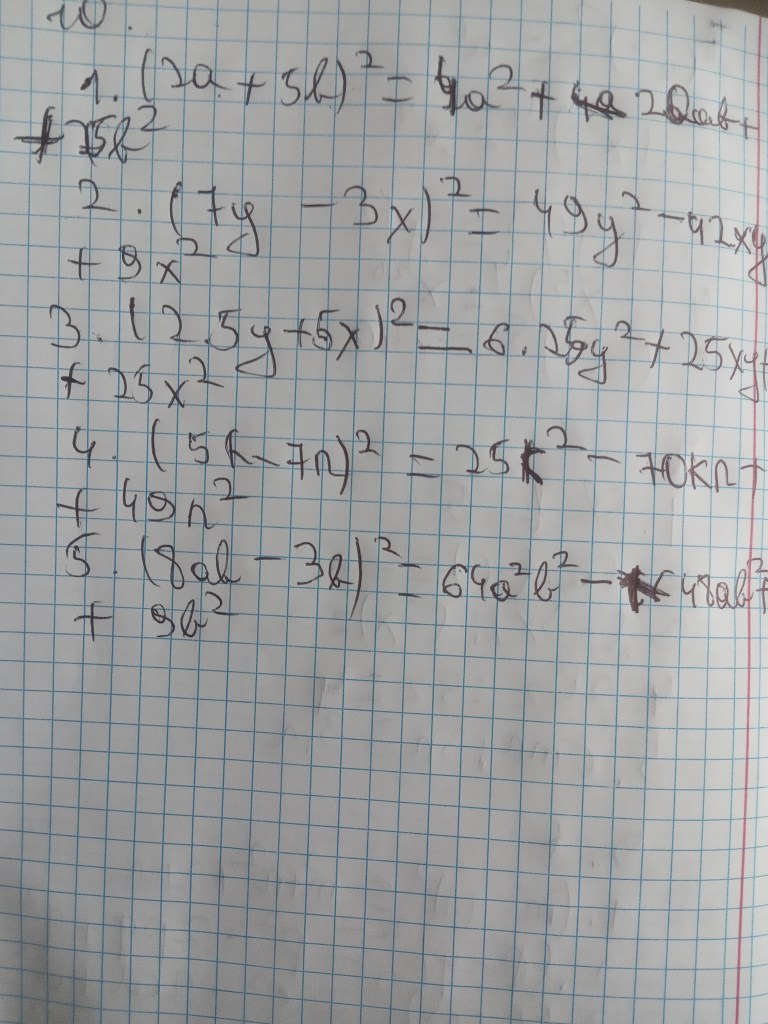 10.
1. (2a + 5b)² = 4a² + 20ab +
+ 25b²
2. (7y - 3x)² = 49y² - 42xy
+ 9x²
3. (2.5y + 5x)² = 6.25y² + 25xy +
+ 25x²
4. (5k - 7n)² = 25k² - 70kn +
+ 49n²
5. (8ab - 3b)² = 64a²b² - 48ab² +
+ 9b²